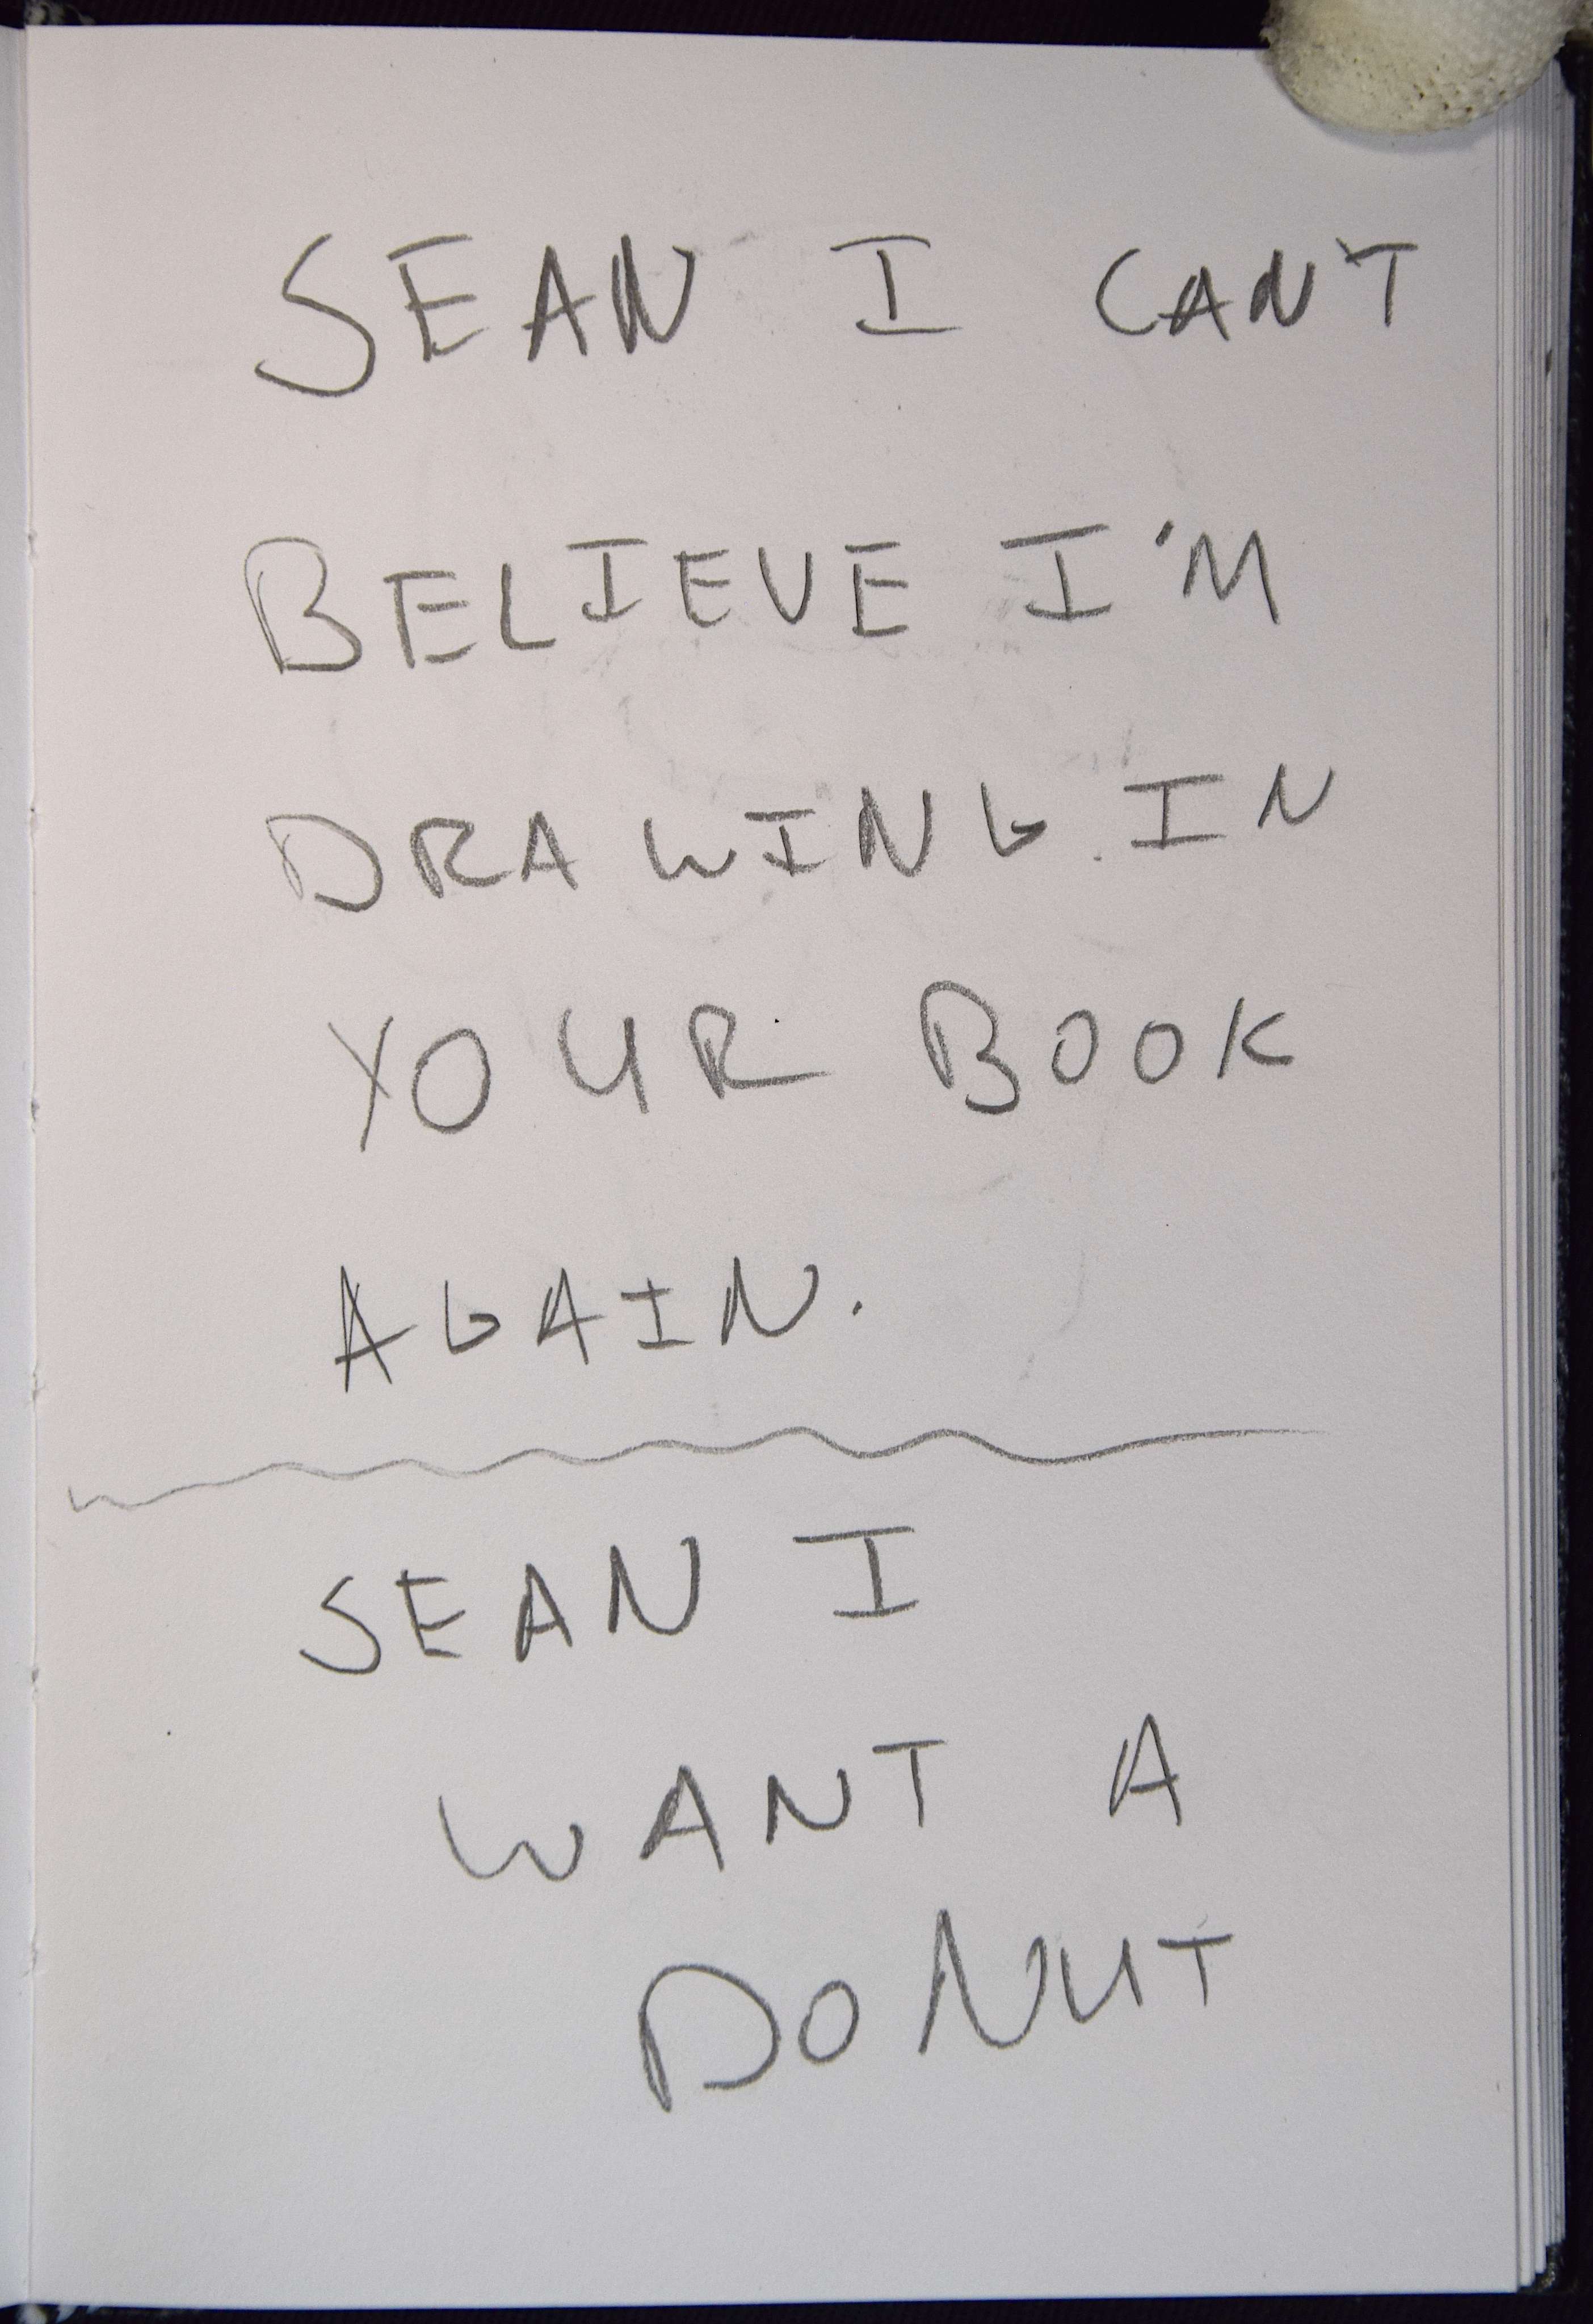 SEAN I CAN'T
BELIEVE I'M
DRAWING IN
YOUR BOOK
AGAIN.
SEAN I
WANT A
DONUT